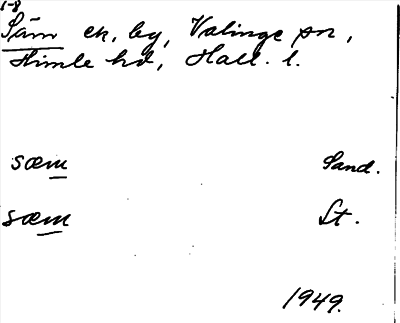 1-8
Säm ek, by, Valinge sn,
Himle hd, Hall. l.
sæm Sand.
sæm St.
1949.